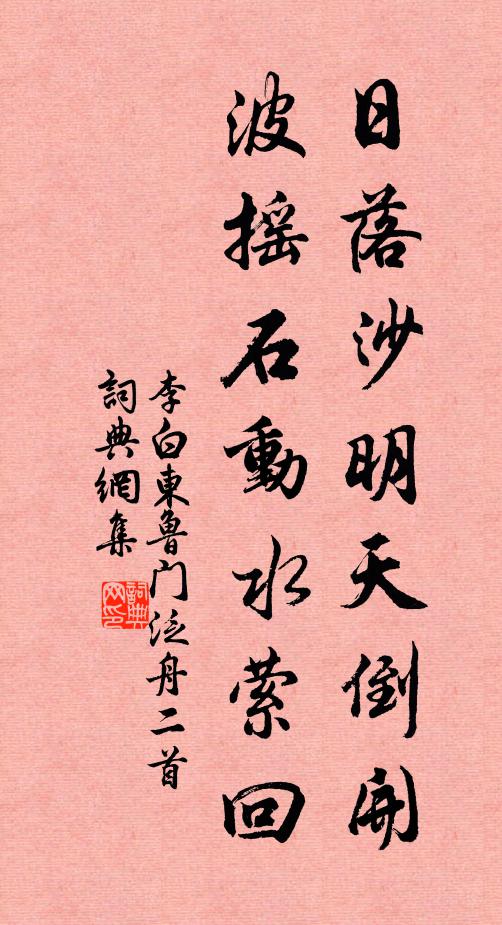 日落沙明天倒開
波摇石動水萦回
李白東魯门泛舟二首
詞典網集
詞典
网印